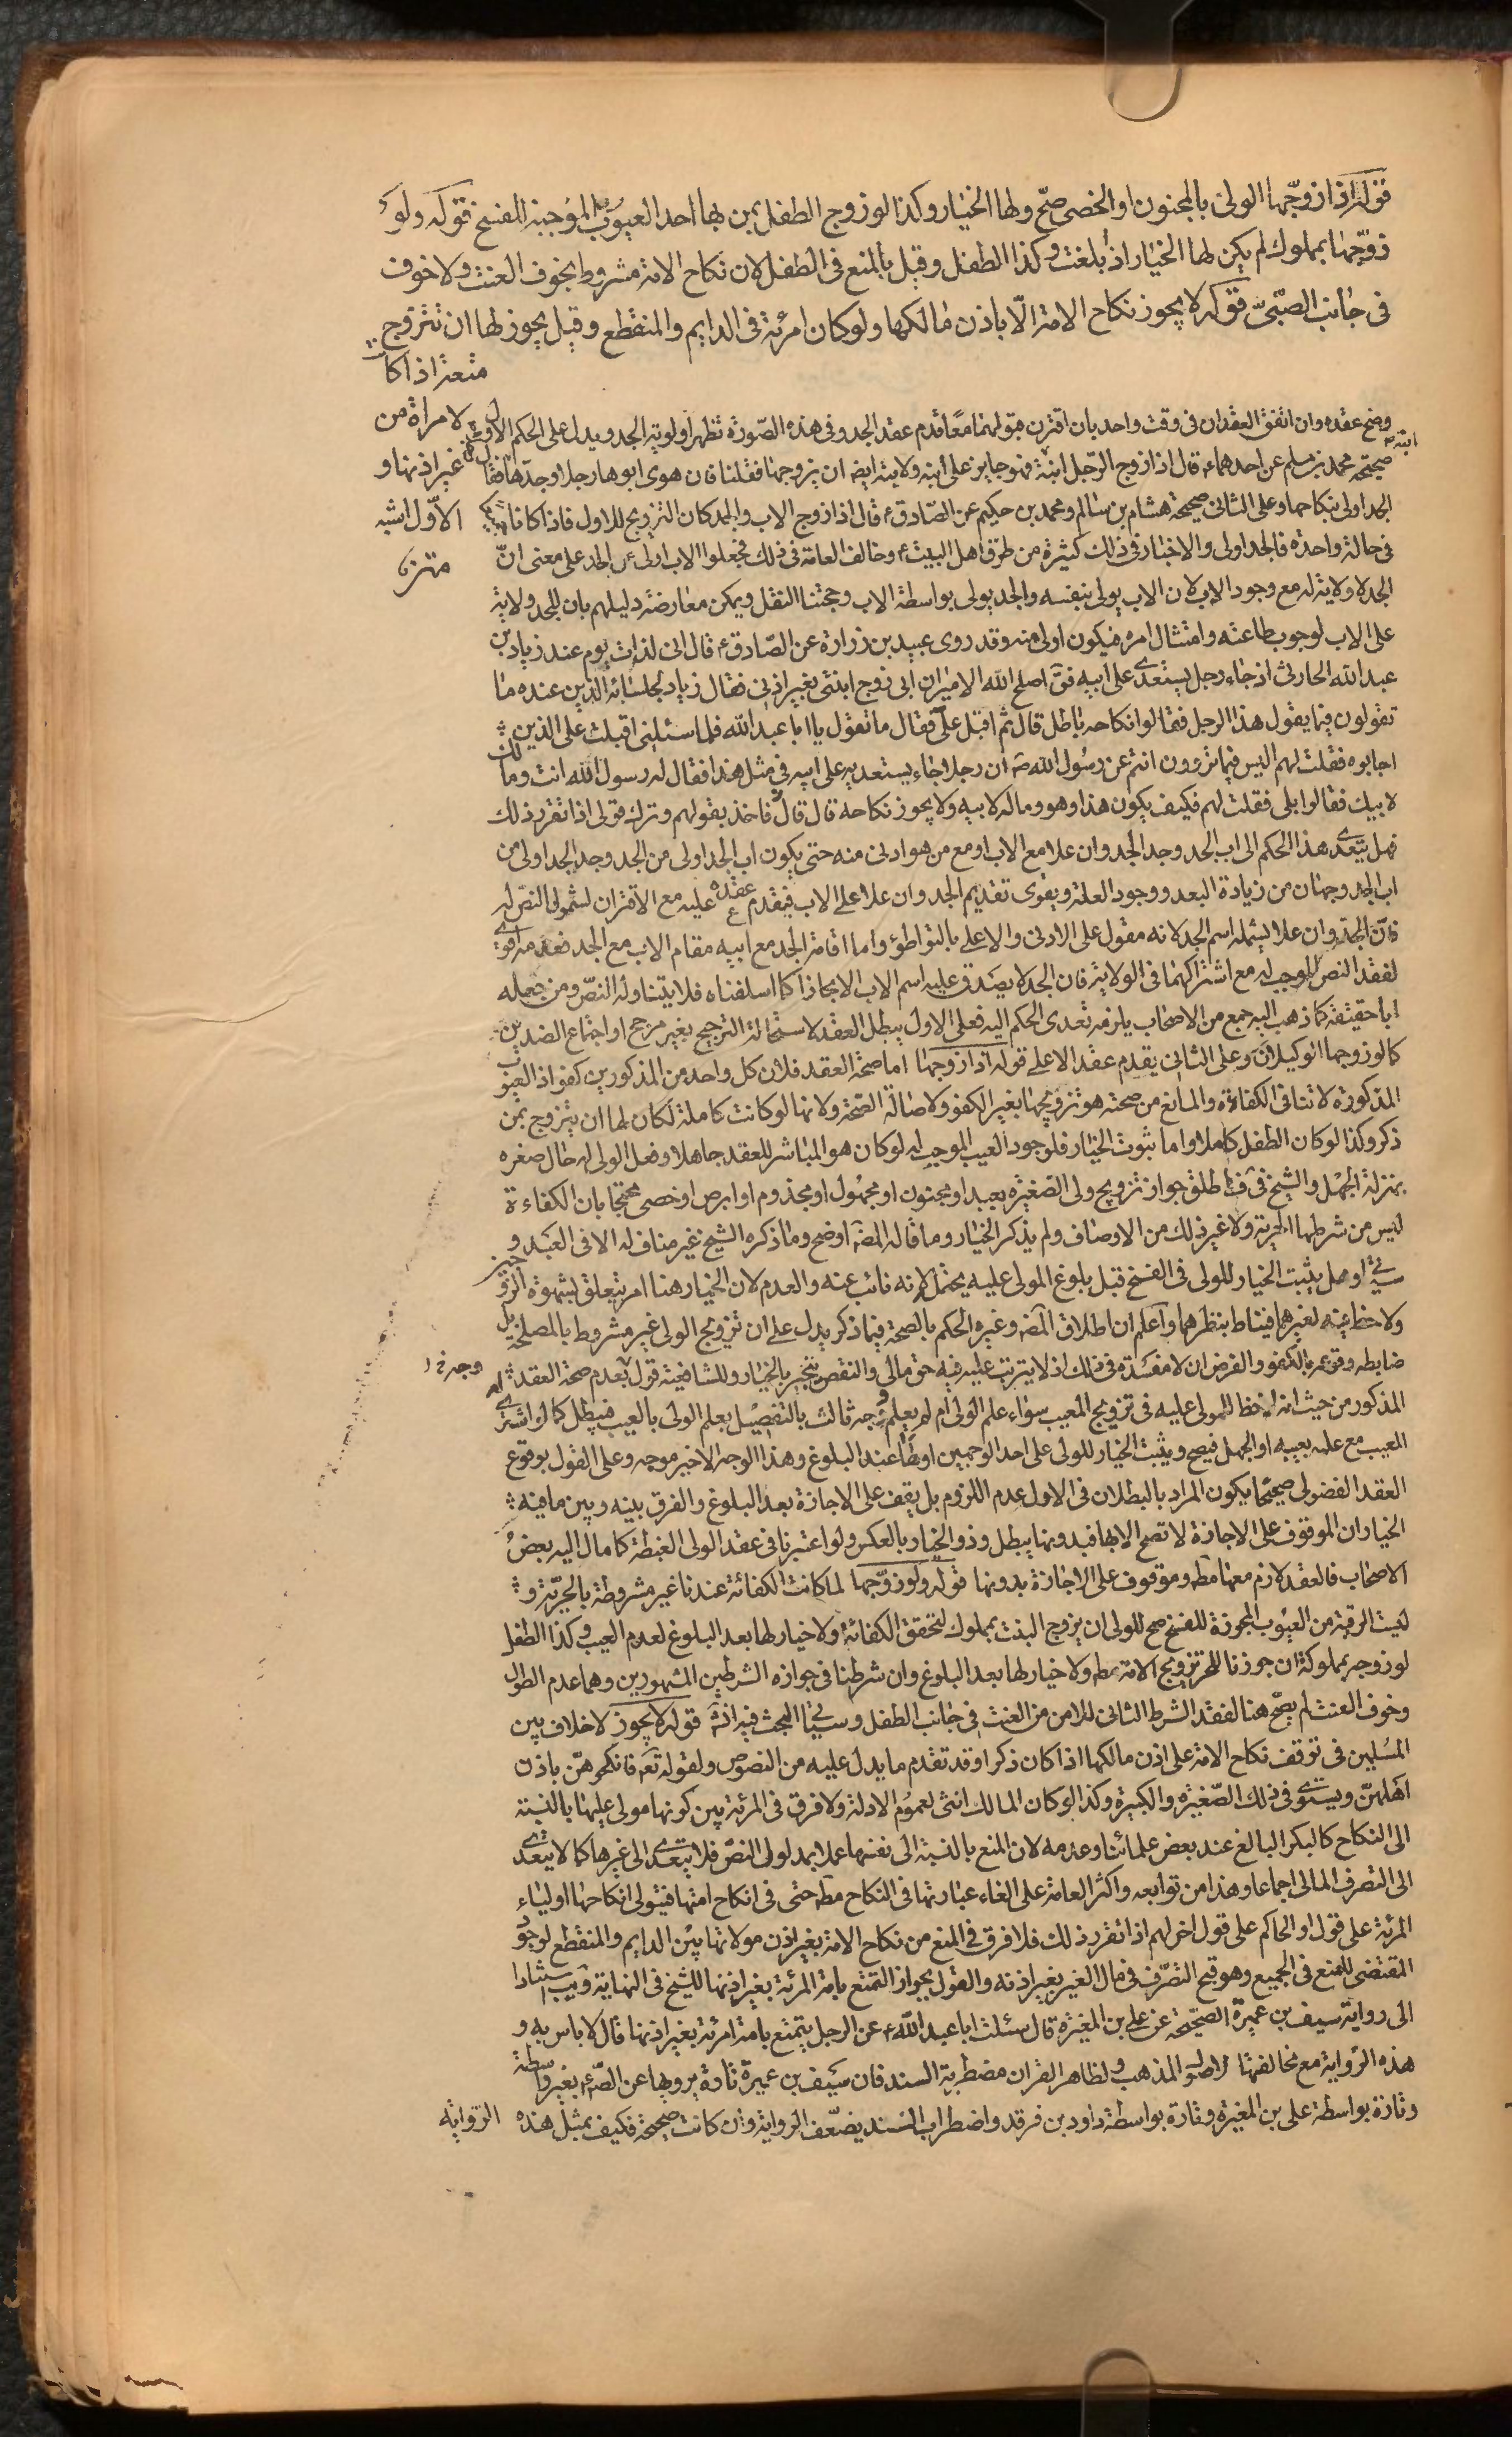 قوله اذا زوّجها الولى بالمجنون او الخصى صحّ ولها الخيار وكذا لو زوج الطفل بمن بها احد العيوب الموجبة للفسخ قوله ولو
زوّجها بمملوك لم يكن لها الخيار اذا بلغت وكذا الطفل وقيل بالمنع فى الطفل لان نكاح الامة مشروط بخوف العنت ولا خوف
فى جانب الصّبىّ قوله لا يجوز نكاح الامة الّا باذن مالكها ولو كان امرئة فى الدايم والمنقطع وقيل يجوز لها ان تتزوج
متعة اذا كانت
لامراة من
غير اذنها و
الاوّل اشبه
وضح عقده وان اتفق العقدان فى وقت واحد بان اقترن قبولهما معًا قدم عقد الجد وفى هذه الصّورة تظهر اولوية الجد ويدل على الحكم الاول
صحيحة محمد بن مسلم عن احدهماء قال اذا زوج الرّجل ابنة ابنه فهو جايز على ابنه ولابنه ايضه ان يزوجها فقلنا فان هوى ابوها رجلا وجدّها رجلا فقال
الجد اولى بنكاحها وعلى الثانى صحيحة هشام بن سالم ومحمد بن حكيم عن الصّادق ع قال اذا زوج الاب والجد كان التزويج للاول فاذا كانا
فى حالة واحدة فالجد اولى والاخبار فى ذلك كثيرة من طرق اهل البيت ع وخالف العامة فى ذلك فجعلوا الاب اولى من الجد على معنى انّ
الجد لا ولاية له مع وجود الاب لان الاب يولى بنفسه والجد يولى بواسطة الاب وحجتنا النقل ويمكن معارضة دليلهم بان للجد ولاية
على الاب لوجوب طاعته وامتثال امره فيكون اولى منه وقد روى عبيد بن زرارة عن الصّادق ع قال انى لذات يوم عند زياد بن
عبد الله الحارثى اذ جاء رجل يستعدى على ابيه فق اصلح الله الامير ان ابى زوج ابنتى بغير اذنى فقال زياد لجلسائه الذين عنده ما
تقولون فيما يقول هذا الرجل فقالوا نكاحه باطل قال ثم اقبل علىّ فقال ما تقول يا ابا عبد الله فلما سئلنى اقبلت على الذين
اجابوه فقلت لهم اليس فيما تروون انتم عن رسول الله ص ان رجلا جاء يستعديه على ابيه فى مثل هذا فقال له رسول الله انت ومالك
لابيك فقالوا بلى فقلت لهم فكيف يكون هذا وهو وماله لابيه ولا يجوز نكاحه قال فاخذ بقولهم وترك قولى اذا تقرر ذلك
فهل يتعدى هذا الحكم الى اب الجد وجد الجد وان علا مع الاب او مع من هو ادنى منه حتى يكون اب الجد اولى من الجد وجد الجد اولى من
اب الجد وجهان من زيادة البعد ووجود العلة ويقوى تقديم الجد وان علا على الاب فيقدم عقده عليه مع الاقتران لشمول النصّ له
فانّ الجد وان علا يشمله اسم الجد لانه مقول على الادنى والاعلى بالتواطؤ واما اقامة الجد مع ابيه مقام الاب مع الجد فعدمه اقوى
لفقد النصّ الموجب له مع اشتراكهما فى الولاية فان الجد لا يصدق عليه اسم الاب الا مجازا كما اسلفناه فلا يتناوله النصّ ومن جعله
ابا حقيقة كما ذهب اليه جمع من الاصحاب يلزمه تعدى الحكم اليه فعلى الاول يبطل العقد لاستحالة الترجيح بغير مرجح او اجتماع الضدين
كما لو زوجها الوكيلان وعلى الثانى يقدم عقد الاعلى قوله اذا زوجها اما صحة العقد فلان كل واحد من المذكورين كفو اذ العيوب
المذكورة لا تنافى الكفاءة والمانع من صحته هو تزويجها بغير الكفو ولاصالة الصّحة ولانها لو كانت كاملة لكان لها ان يتزوج بمن
ذكر وكذا لو كان الطفل كاملا واما ثبوت الخيار فلوجود العيب الموجب له لو كان هو المباشر للعقد جاهلا وفعل الولى له حال صغره
بمنزلة الجهل والشيخ فى ف اطلق جواز تزويج ولى الصّغيرة بعبد او مجنون او مجهول او مجذوم او ابرص او خصى محتجا بان الكفاءة
ليس من شرطها الحرية ولا غير ذلك من الاوصاف ولم يذكر الخيار وما قاله المضه اوضح وما ذكره الشيخ غير مناف له الا فى العبد و
سيأتى وهل يثبت الخيار للولى فى الفسخ قبل بلوغ المولى عليه يحتمله لانه نائب عنه والعدم لان الخيار هنا امر يتعلق بشهوة الزوجين
ولا حظ فيه لغيرهما فيناط بنظرهما واعلم ان اطلاق المضه وغيره الحكم بالصحة فيما ذكر يدل على ان تزويج الولى غير مشروط بالمصلحة بل
ضابطه وقوعه بالكفو والفرض ان لا مفسدة فى ذلك اذ لا يترتب عليه فيه حق مالى والنقص ينجبر بالخيار وللشافعية قول بعدم صحة العقد
المذكور من حيث انه لا حظ للمولى عليه فى تزويج المعيب سواء علم الولى ام لم يعلم وجه ثالث بالتفصيل بعلم الولى بالعيب فيبطل كما لو اشترى له
العيب مع علمه بعيبه او الجهل فيصح ويثبت الخيار للولى على احد الوجهين او لها عند البلوغ وهذا الوجه الاخير موجه وعلى القول بوقوع
العقد الفضولى صحيحًا يكون المراد بالبطلان فى الاول عدم اللزوم بل يقف على الاجازة بعد البلوغ والفرق بينه وبين ما فيه
الخيار ان الموقوف على الاجازة لا تصح الا بها فبدونها يبطل وذو الخيار بالعكس ولو اعتبرنا فى عقد الولى الغبطة كما مال اليه بعض
الاصحاب فالعقد لازم معها مطه وموقوف على الاجازة بدونها قوله ولو زوّجها لما كانت الكفائة عندنا غير مشروطة بالحريّة و
ليست الرقية من العيوب المجوزة للفسخ صح للولى ان يزوج البنت بمملوك لتحقق الكفائة ولا خيار لها بعد البلوغ لعدم العيب وكذا الطفل
لو زوجه بمملوكة ان جوزنا للحر تزويج الامة مطه ولا خيار لها بعد البلوغ وان شرطنا فى جوازه الشرطين المشهورين وهما عدم الطول
وخوف العنت لم يصحّ هنا لفقد الشرط الثانى للامن من العنت فى جانب الطفل وسيأتى البحث فيه انشه قوله لا يجوز لا خلاف بين
المسلمين فى توقف نكاح الامة على اذن مالكها اذا كان ذكرا وقد تقدم ما يدل عليه من النصوص ولقوله تعه فانكحوهنّ باذن
اهلهنّ ويستوى فى ذلك الصّغيرة والكبيرة وكذا لو كان المالك انثى لعموم الادلة ولا فرق فى المرئة بين كونها مولى عليها بالنسبة
الى النكاح كالبكر البالغ عند بعض علمائنا وعدمه لان المنع بالنسبة الى نفسها عملا بمدلول النصّ فلا يتعدى الى غيرها كما لا يتعدى
الى التصرف المالى اجماعا وهذا من توابعه واكثر العامة على الغاء عبارتها فى النكاح مطه حتى فى انكاح امتها فيتولى انكاحها اولياء
المرئة على قول او الحاكم على قول اخر لهم اذا تقرر ذلك فلا فرق فى المنع من نكاح الامة بغير اذن مولاتها بين الدايم والمنقطع لوجود
المقتضى للمنع فى الجميع وهو قبح التصّرف فى مال الغير بغير اذنه والقول بجواز التمتع بامة المرئة بغير اذنها للشيخ فى النهاية ويب استنادا
الى رواية سيف بن عميرة الصحيحة عن على بن المغيرة قال سئلت ابا عبد الله ع عن الرجل يتمتع بامة امرئة بغير اذنها قال لا باس به و
هذه الرّواية مع مخالفتها لاصول المذهب ولظاهر القران مضطربة السند فان سيف بن عميرة تارة يرويها عن الصّ ع بغير واسطة
وتارة بواسطة على بن المغيرة وتارة بواسطة داود بن فرقد واضطراب السند يضعّف الرواية وان كانت صحيحة فكيف بمثل هذه الرواية